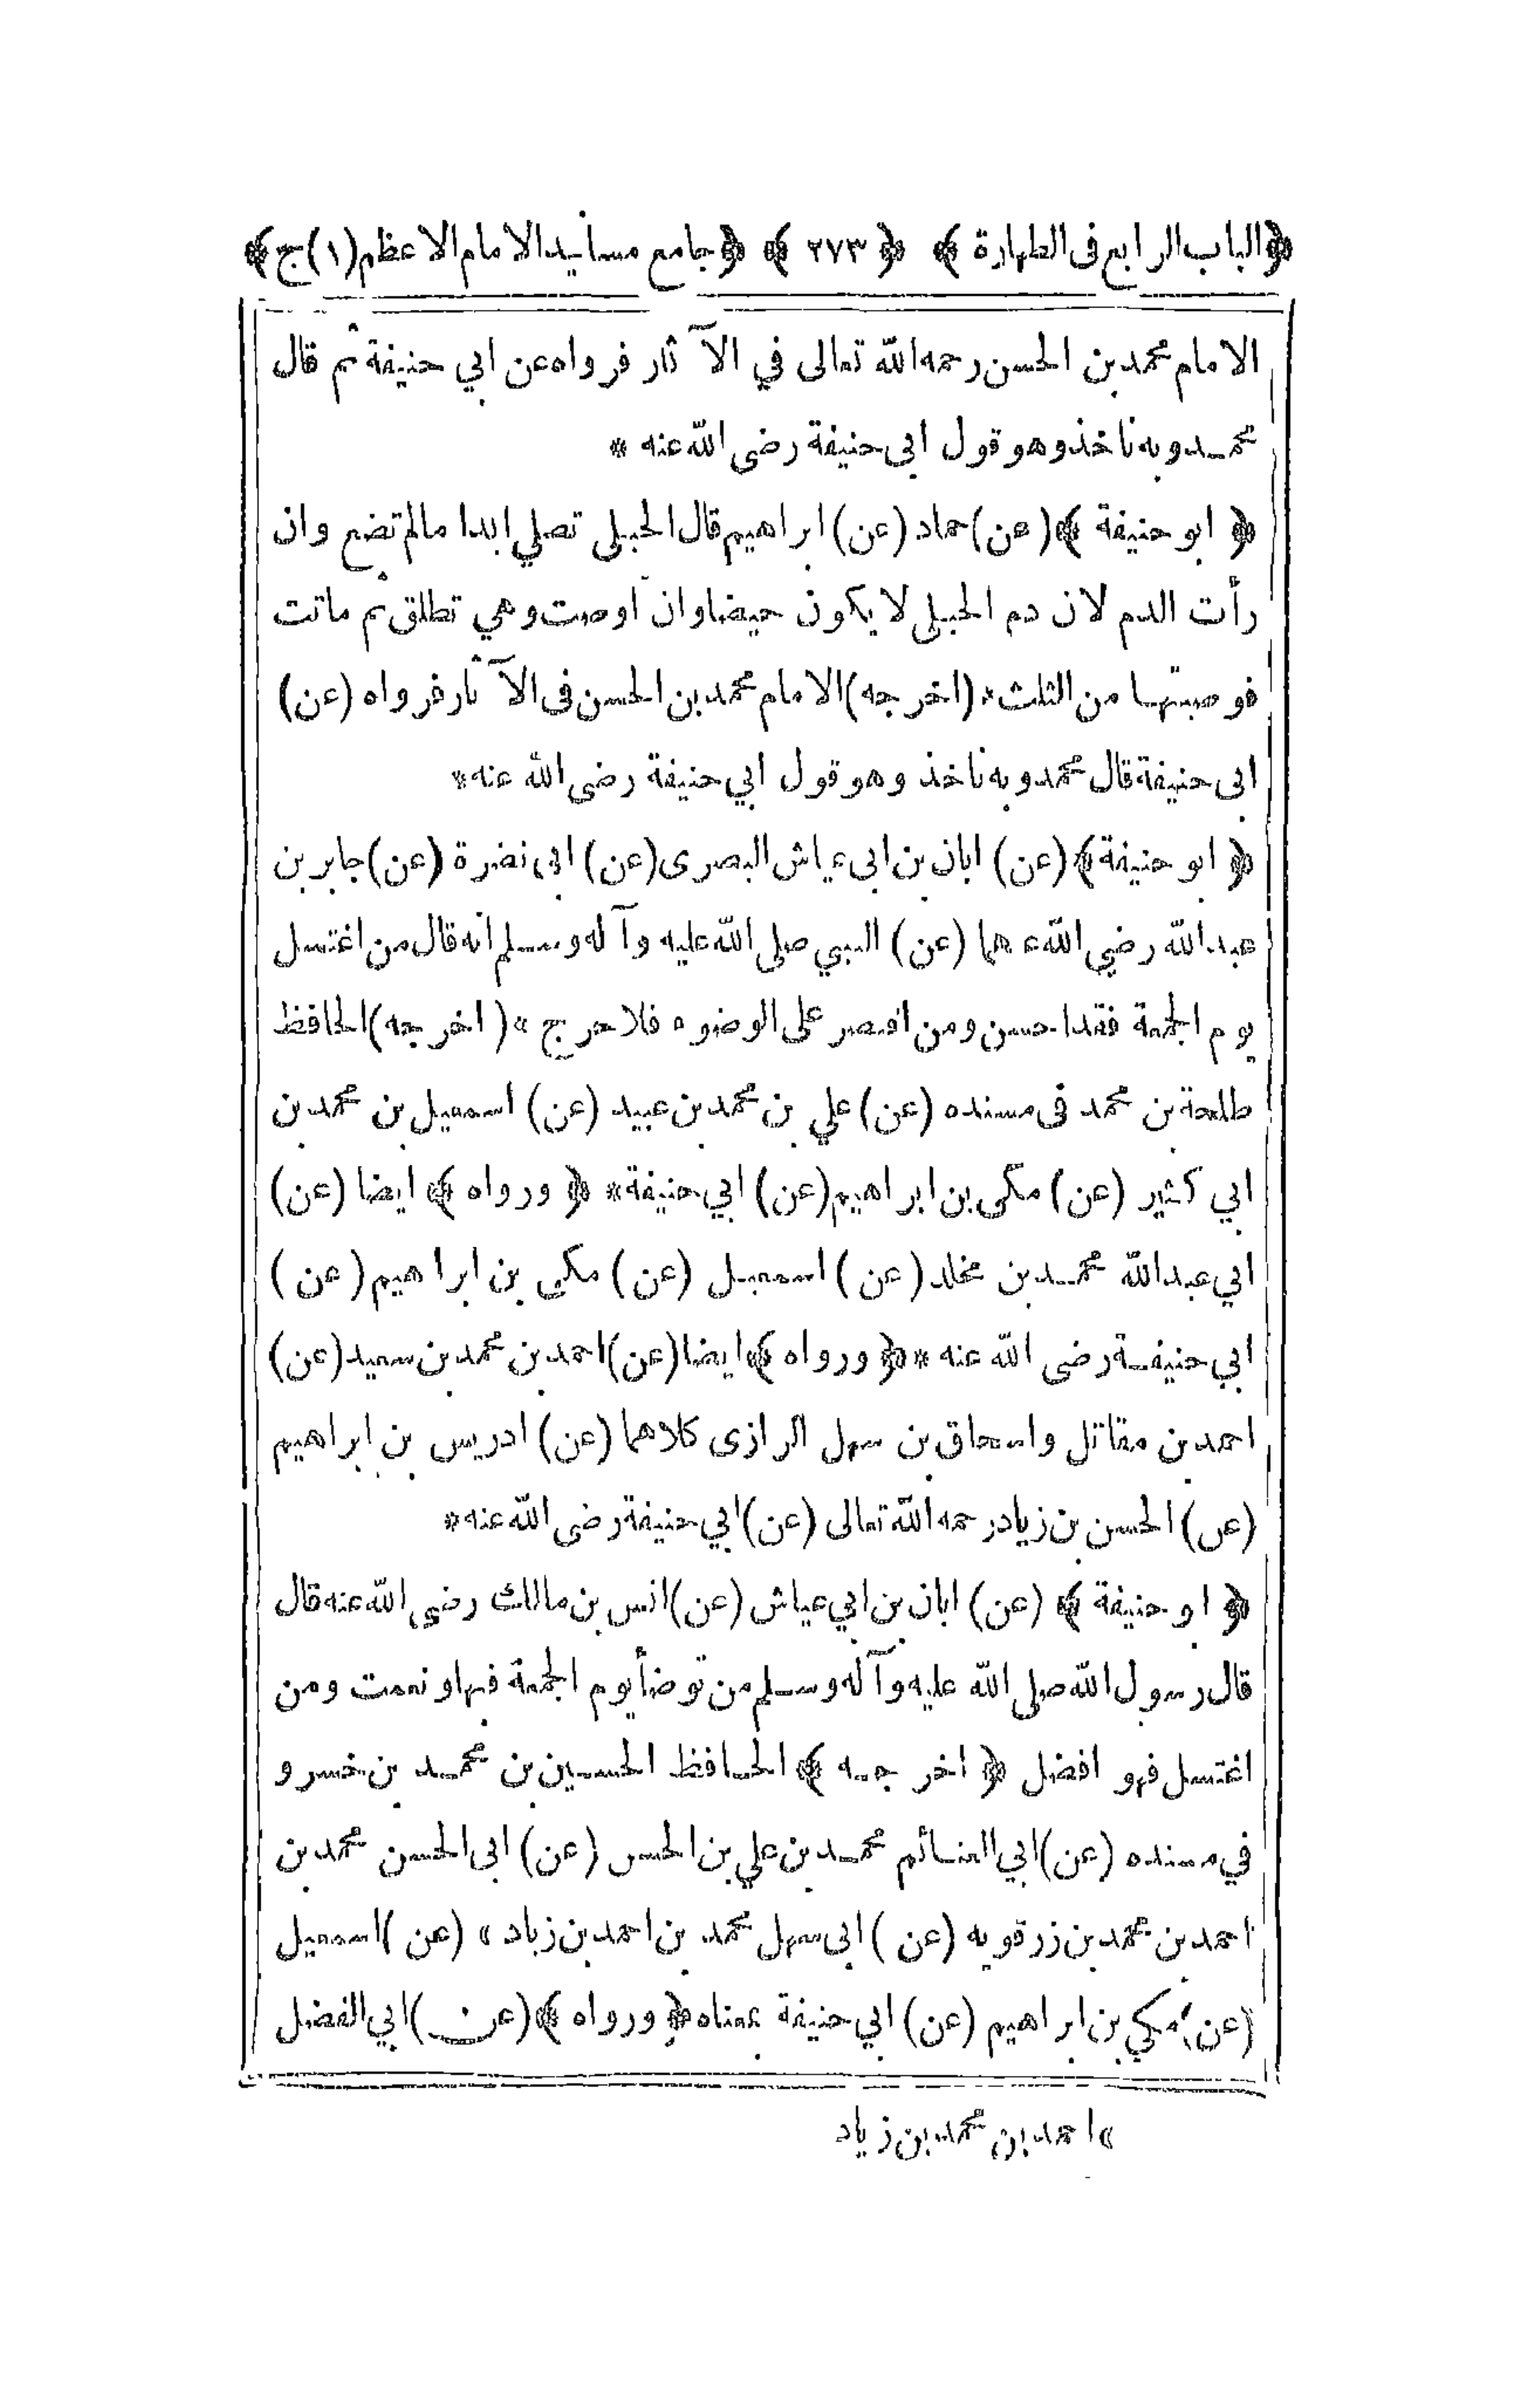 ﴿الباب الرابع فى الطهارة﴾ ﴿٢٧٣﴾ ﴿جامع مسانيد الامام الاعظم(١)ج﴾
الامام محمد بن الحسن رحمه الله تعالى في الآثار فرواه عن ابي حنيفة ثم قال
محمد وبه ناخذ وهو قول ابى حنيفة رضى الله عنه *
﴿ ابو حنيفة ﴾ (عن) حماد (عن) ابراهيم قال الحبلى تصلي ابدا مالم تضع وان
رأت الدم لان دم الحبلى لا يكون حيضا وان اوصت وهي تطلق ثم ماتت
فوصيتها من الثلث * (اخرجه) الامام محمد بن الحسن فى الآثار فرواه (عن)
ابى حنيفة قال محمد وبه ناخذ وهو قول ابي حنيفة رضى الله عنه *
﴿ ابو حنيفة ﴾ (عن) ابان بن ابى عياش البصرى (عن) ابى نضرة (عن) جابر بن
عبد الله رضي الله عنهما (عن) النبي صلى الله عليه وآله وسلم انه قال من اغتسل
يوم الجمعة فقد احسن ومن اقتصر على الوضوء فلا حرج * (اخرجه) الحافظ
طلحة بن محمد فى مسنده (عن) علي بن محمد بن عبيد (عن) اسمعيل بن محمد بن
ابي كثير (عن) مكى بن ابراهيم (عن) ابي حنيفة * ﴿ ورواه ﴾ ايضا (عن)
ابي عبد الله محمد بن مخلد (عن) اسمعيل (عن) مكى بن ابراهيم (عن)
ابي حنيفة رضى الله عنه * ﴿ ورواه ﴾ ايضا (عن) احمد بن محمد بن سعيد (عن)
احمد بن مقاتل واسحاق بن سهل الرازى كلاهما (عن) ادريس بن ابراهيم
(عن) الحسن بن زياد رحمه الله تعالى (عن) ابي حنيفة رضى الله عنه *
﴿ ابو حنيفة ﴾ (عن) ابان بن ابي عياش (عن) انس بن مالك رضى الله عنه قال
قال رسول الله صلى الله عليه وآله وسلم من توضأ يوم الجمعة فبها ونعمت ومن
اغتسل فهو افضل ﴿ اخرجه ﴾ الحافظ الحسين بن محمد بن خسرو
في مسنده (عن) ابي الغنائم محمد بن علي بن الحسن (عن) ابى الحسن محمد بن
احمد بن محمد بن زرقويه (عن) ابى سهل محمد بن احمد بن زياد » (عن) اسمعيل
(عن) مكي بن ابراهيم (عن) ابي حنيفة بمعناه ﴿ ورواه ﴾ (عن) ابي الفضل
» احمد بن محمد بن زياد